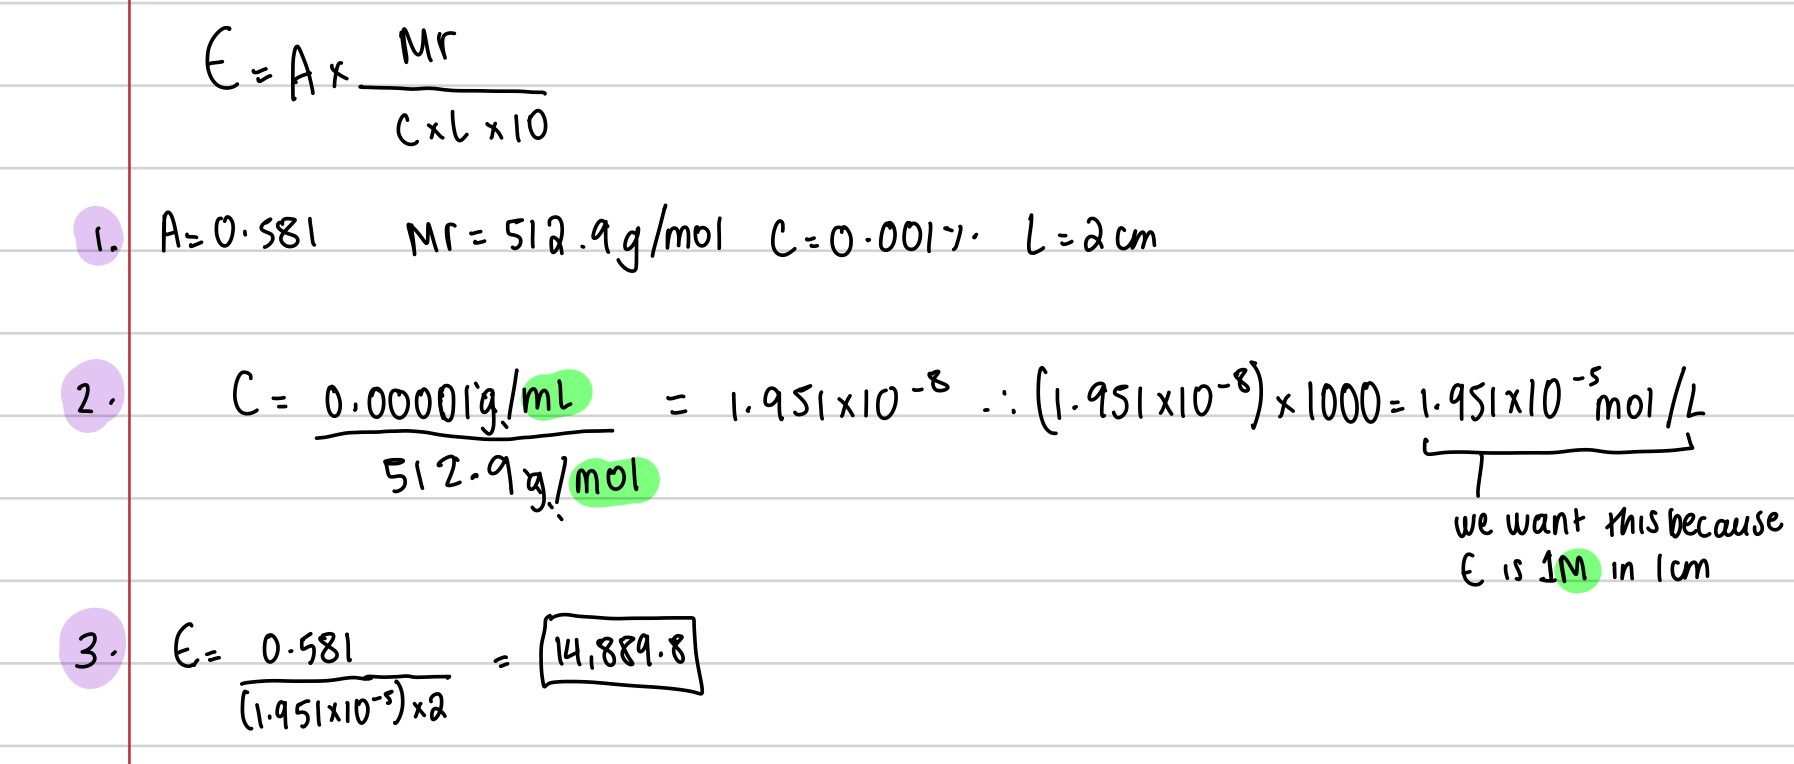 Є = A × Mr / C × L × 10
1. A = 0.581 Mr = 512.9 g/mol C = 0.001% L = 2 cm
2. C = 0.00001g/mL / 512.9 g/mol = 1.951 × 10⁻⁸ ∴ (1.951 × 10⁻⁸) × 1000 = 1.951 × 10⁻⁵ mol/L
we want this because
Є is 1M in 1cm
3. Є = 0.581 / (1.951 × 10⁻⁵) × 2 = 14,889.8